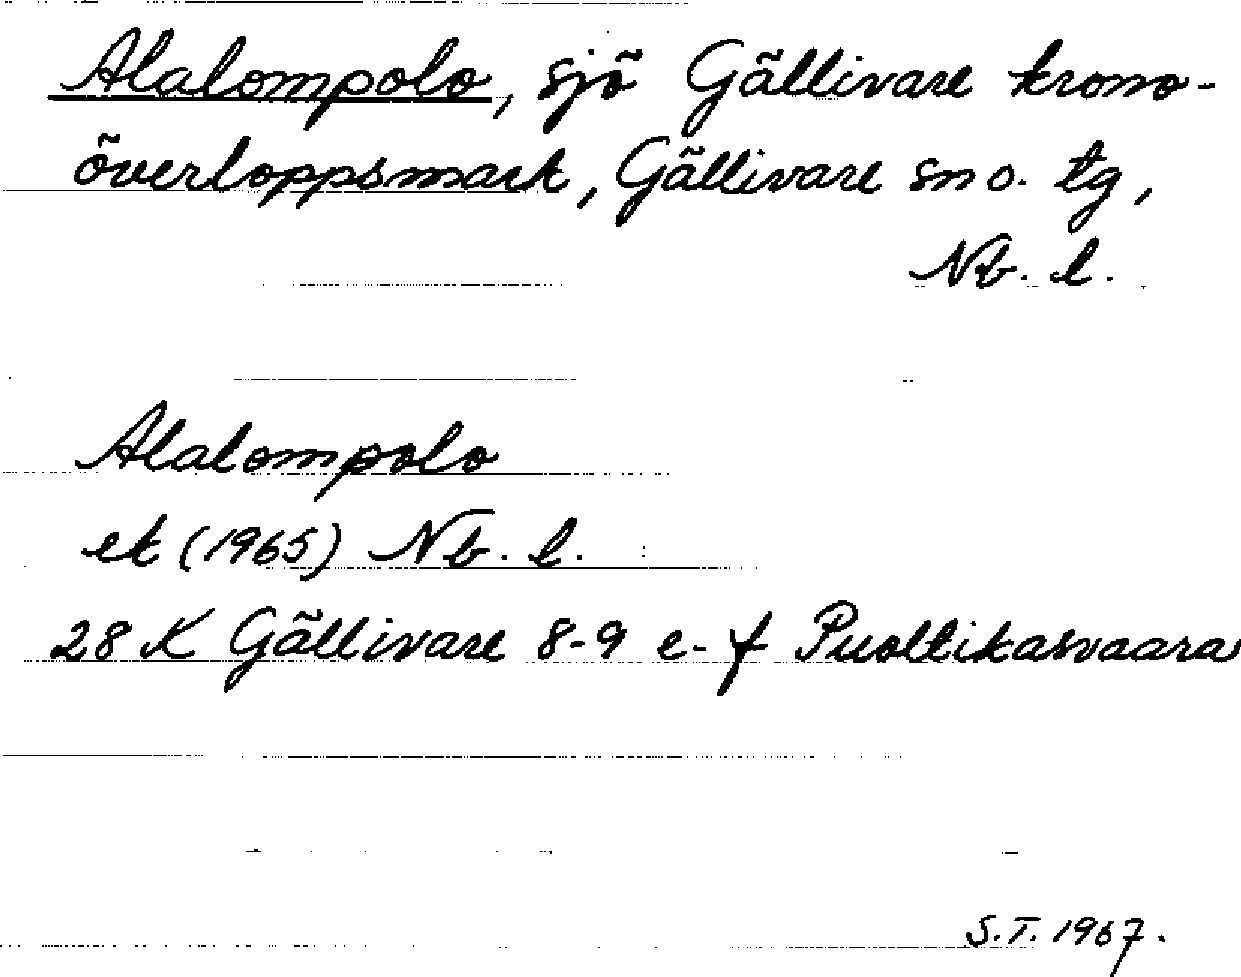 Alalompolo, sjö Gällivare krono-
överloppsmark, Gällivare sn o. tg,
Nb. l.
Alalompolo
ek (1965) Nb. l.
28 K Gällivare 8-9 e-f Puoltikasvaara
S.T. 1967.